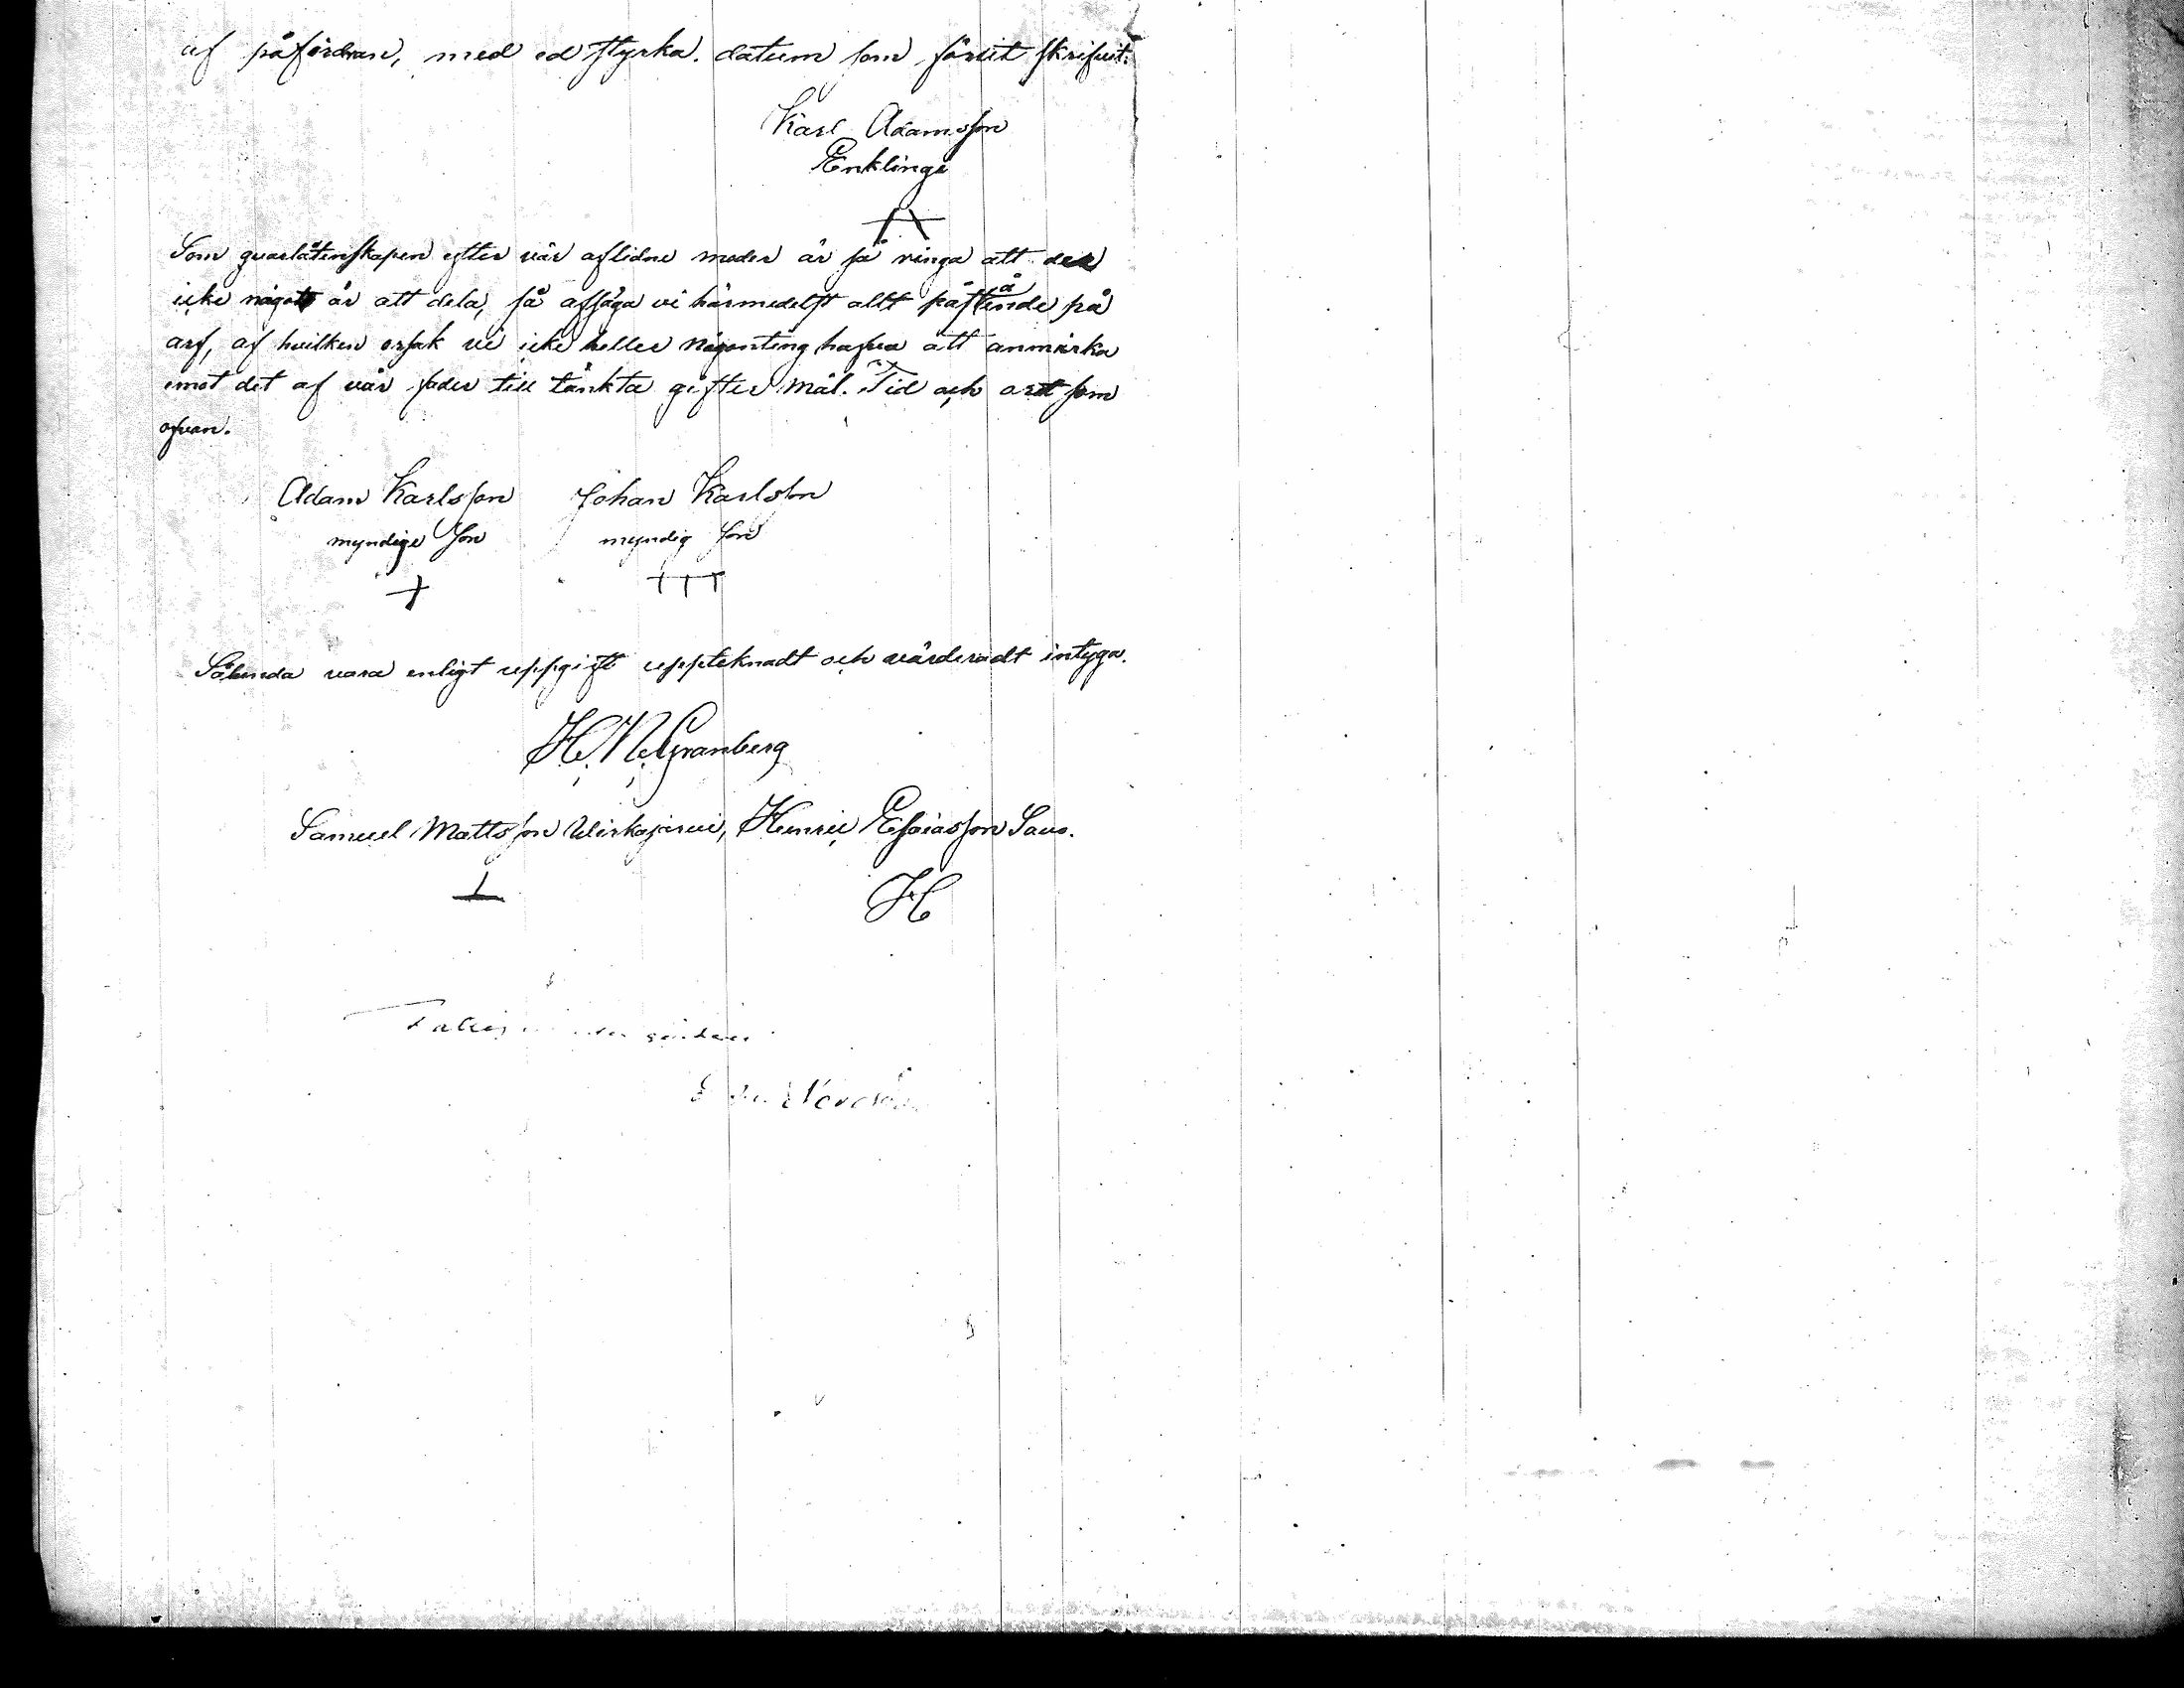 af påfördran, med ed styrka. datum som förut skrifvit.
Karl Adamsson
Enklinge
Som qvarlåtenskapen efter vår aflidne moder är så ringa att der
icke något är att dela, så afsäga vi härmedelst allt påstånde på
arf, af hvilken orsak vi icke heller någonting hafva att anmärka
emot det af vår fader till tänkta gifter mål. Tid och ort som
ofvan.
Adam Karlsson Johan Karlsson
myndige son myndig son
Sålunda vara enligt uppgift uppteknadt och värderadt intyga.
H. N. Granberg
Samuel Mattsson Wirkajärvi, Henric Esaiasson Saus.
H